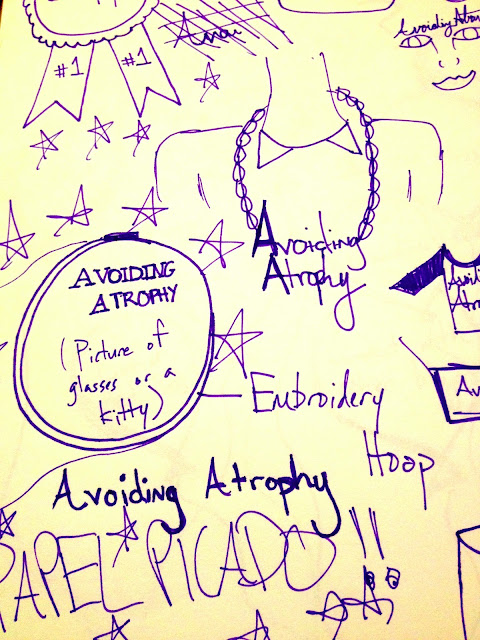 #1
#1
Avoiding
Avoiding
Atrophy
AVOIDING
ATROPHY
(Picture of
glasses or a
kitty)
Embroidery
Hoop
Avoiding Atrophy
PAPEL PICADO!!
Av